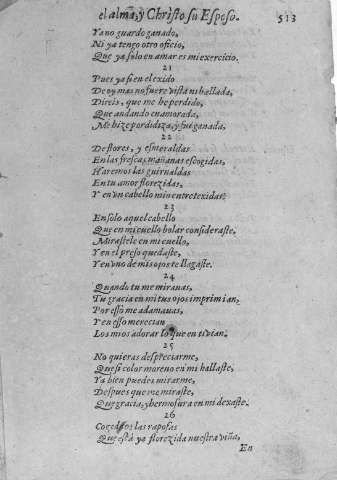 el alma, y Christo su Esposo.
513
Ya no guardo ganado,
Ni ya tengo otro oficio,
Que ya solo en amar es mi exercicio.
21
Pues ya si en el exido
De oy mas no fuere vista ni hallada,
Direis, que me he perdido,
Que andando enamorada,
Me hize perdidiza, y fui ganada,
22
De flores, y esmeraldas
En las frescas mañanas escogidas,
Haremos las guirnaldas
En tu amor florezidas,
Y en vn cabello mi entretexidas.
23
En solo aquel cabello
Que en mi cuello bolar consideraste.
Mirastele en mi cuello,
Y en el preso quedaste,
Y en vno de mis ojos te llagaste.
24
Quando tu me mirauas,
Tu gracia en mi tus ojos imprimian,
Por esso me adamauas,
Y en esso merecian
Los mios adorar lo que en ti vian.
25
No quieras despreciarme,
Que si color moreno en mi hallaste,
Ya bien puedes mirarme,
Despues que me miraste,
Que gracia, y hermosura en mi dexaste.
26
Coged las raposas
Que está ya florezida nuestra viña,
En